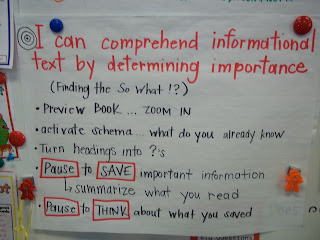 I can comprehend informational
text by determining importance
(Finding the So What !?)
• Preview Book ... ZOOM IN
• activate schema... what do you already know
• Turn headings into ?'s
• Pause to SAVE important information
↳ summarize what you read
• Pause to THINK about what you saved